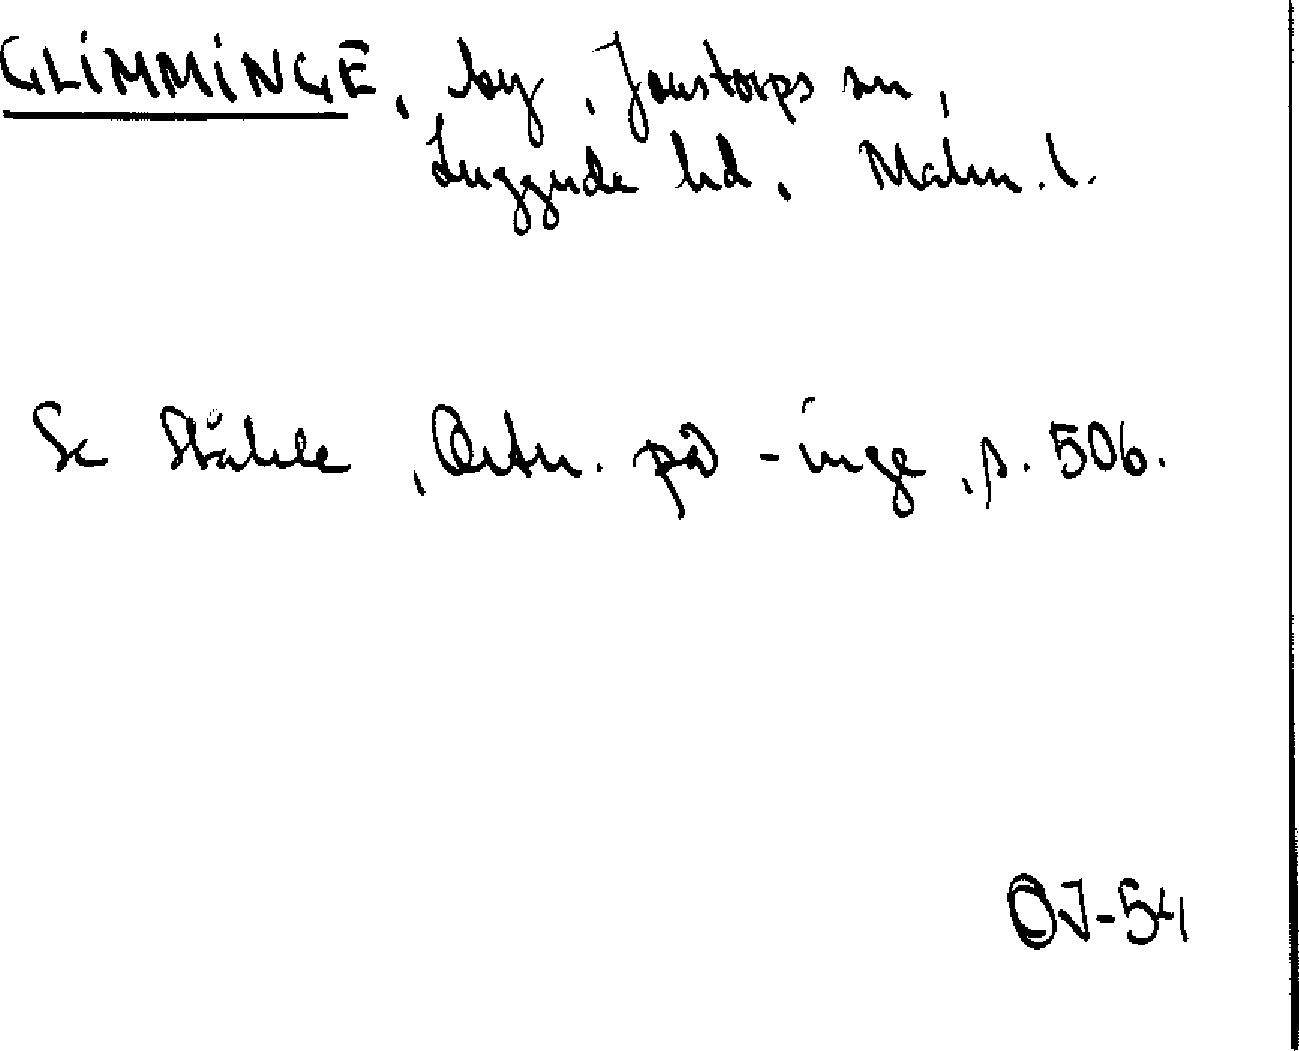 GLIMMINGE, by, Jonstorps sn,
Luggude hd, Malm. l.
Se Ståhle, Ortn. på -inge, s. 506.
OJ-54